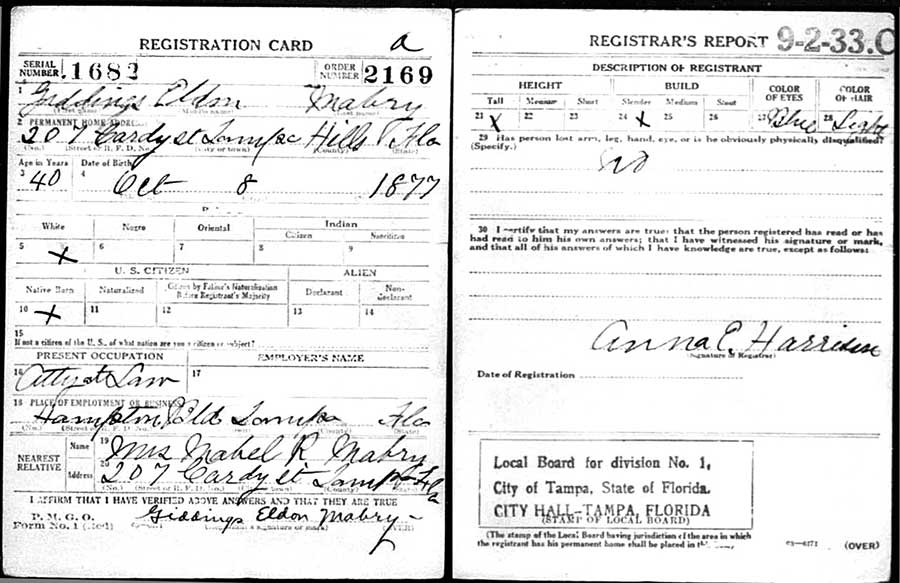 REGISTRATION CARD a
SERIAL NUMBER 1682 ORDER NUMBER 2169
1 Giddings Eldon Mabry
2 PERMANENT HOME ADDRESS
207 Cardy st Tampa Hills Fla
(No.) (Street or R. F. D. No.) (City or town) (County) (State)
Age in Years Date of Birth
3 40 4 Oct 8 1877
White Negro Oriental Indian
Citizen Noncitizen
5 X 6 7 8 9
U. S. CITIZEN ALIEN
Native Born Naturalized Citizen by Father's Naturalization Before Registrant's Majority Declarant Non-declarant
10 X 11 12 13 14
15
If not a citizen of the U. S., of what nation are you a citizen or subject?
PRESENT OCCUPATION EMPLOYER'S NAME
16 Atty at Law 17
18 PLACE OF EMPLOYMENT OR BUSINESS
Hampton Bld Tampa Fla
(No.) (Street or R. F. D. No.) (County) (State)
NEAREST RELATIVE Name 19 Mrs Mabel R Mabry
Address 20 207 Cardy st Tampa Fla
I AFFIRM THAT I HAVE VERIFIED ABOVE ANSWERS AND THAT THEY ARE TRUE
P. M. G. O.
Form No. 1 (Red) Giddings Eldon Mabry
(Registrant's signature or mark) (OVER)
REGISTRAR'S REPORT 9-2-33.C
DESCRIPTION OF REGISTRANT
HEIGHT BUILD COLOR OF EYES COLOR OF HAIR
Tall Medium Short Slender Medium Stout
21 X 22 23 24 X 25 26 27 Blue 28 Light
29 Has person lost arm, leg, hand, eye, or is he obviously physically disqualified?
(Specify.)
No
30 I certify that my answers are true; that the person registered has read or has
had read to him his own answers; that I have witnessed his signature or mark,
and that all of his answers of which I have knowledge are true, except as follows:
Anna C. Harrison
(Signature of Registrar)
Date of Registration
Local Board for division No. 1,
City of Tampa, State of Florida.
CITY HALL-TAMPA, FLORIDA
(STAMP OF LOCAL BOARD)
(The stamp of the Local Board having jurisdiction of the area in which
the registrant has his permanent home shall be placed in
(OVER)